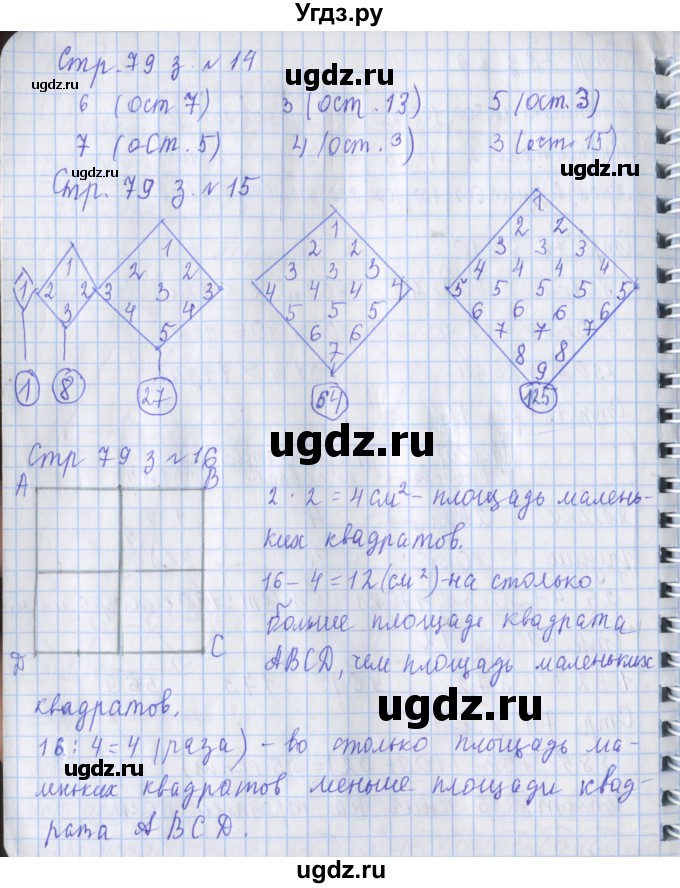 Угдз.ру
Стр. 79 з. № 14
6 (ост 7) 3 (ост. 13) 5 (ост. 3)
7 (ост. 5) 4 (ост. 3) 3 (ост. 15)
Стр. 79 з. № 15
1
1
2 2
3
1
2 2
3 3 3
4 4
5
1
2 2
3 3 3
4 4 4 4
5 5 5
6 6
7
1
2 2
3 3 3
4 4 4 4
5 5 5 5 5
6 6 6 6
7 7 7
8 8
9
1 8 27 64 125
Стр 79 з № 16
A B
D C
2 · 2 = 4 см² - площадь малень-
ких квадратов.
16 - 4 = 12 (см²) - на столько
больше площаде квадрата
ABCD, чем площадь маленьких
квадратов.
16 : 4 = 4 (раза) - во столько площадь ма-
леньких квадратов меньше площади квад-
рата ABCD.
ugdz.ru
ugdz.ru
ugdz.ru
ugdz.ru
ugdz.ru
ugdz.ru
ugdz.ru
ugdz.ru
ugdz.ru
ugdz.ru
ugdz.ru
ugdz.ru